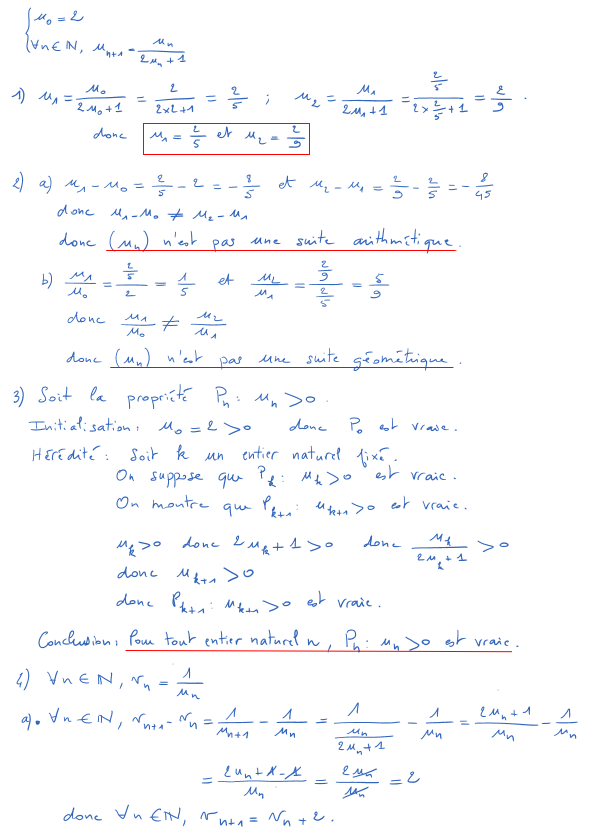 { u₀ = 2
∀n ∈ ℕ, uₙ₊₁ = uₙ / (2uₙ + 1)
1) u₁ = u₀ / (2u₀ + 1) = 2 / (2×2+1) = 2/5 ; u₂ = u₁ / (2u₁ + 1) = (2/5) / (2 × 2/5 + 1) = 2/9 .
donc u₁ = 2/5 et u₂ = 2/9
2) a) u₁ - u₀ = 2/5 - 2 = - 8/5 et u₂ - u₁ = 2/9 - 2/5 = - 8/45
donc u₁ - u₀ ≠ u₂ - u₁
donc (uₙ) n'est pas une suite arithmétique.
b) u₁/u₀ = (2/5) / 2 = 1/5 et u₂/u₁ = (2/9) / (2/5) = 5/9
donc u₁/u₀ ≠ u₂/u₁
donc (uₙ) n'est pas une suite géométrique.
3) Soit la propriété Pₙ : uₙ > 0.
Initialisation : u₀ = 2 > 0 donc P₀ est vraie.
Hérédité : Soit k un entier naturel fixé.
On suppose que Pₖ : uₖ > 0 est vraie.
On montre que Pₖ₊₁ : uₖ₊₁ > 0 est vraie.
uₖ > 0 donc 2uₖ + 1 > 0 donc uₖ / (2uₖ + 1) > 0
donc uₖ₊₁ > 0
donc Pₖ₊₁ : uₖ₊₁ > 0 est vraie.
Conclusion : Pour tout entier naturel n, Pₙ : uₙ > 0 est vraie.
4) ∀n ∈ ℕ, vₙ = 1/uₙ
a) • ∀n ∈ ℕ, vₙ₊₁ - vₙ = 1/uₙ₊₁ - 1/uₙ = 1 / (uₙ / (2uₙ + 1)) - 1/uₙ = (2uₙ + 1)/uₙ - 1/uₙ
= (2uₙ + 1 - 1)/uₙ = 2uₙ/uₙ = 2
donc ∀n ∈ ℕ, vₙ₊₁ = vₙ + 2.